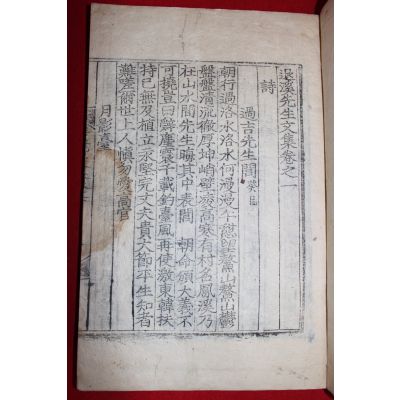 退溪先生文集卷之一
詩
過吉先生閭
朝行過洛水洛水何漫漫午憩望鰲山鰲山鬱
盤盤淸流徹厚坤峭壁凌高寒有村名鳳溪乃
在山水間先生晦其中表閭 朝命頒大義不
可撓豈曰辭塵寰千載釣臺風再使激東韓扶
持已無及植立永堅完丈夫貴大節平生知者
難嗟爾世上人愼勿愛高官
月影臺